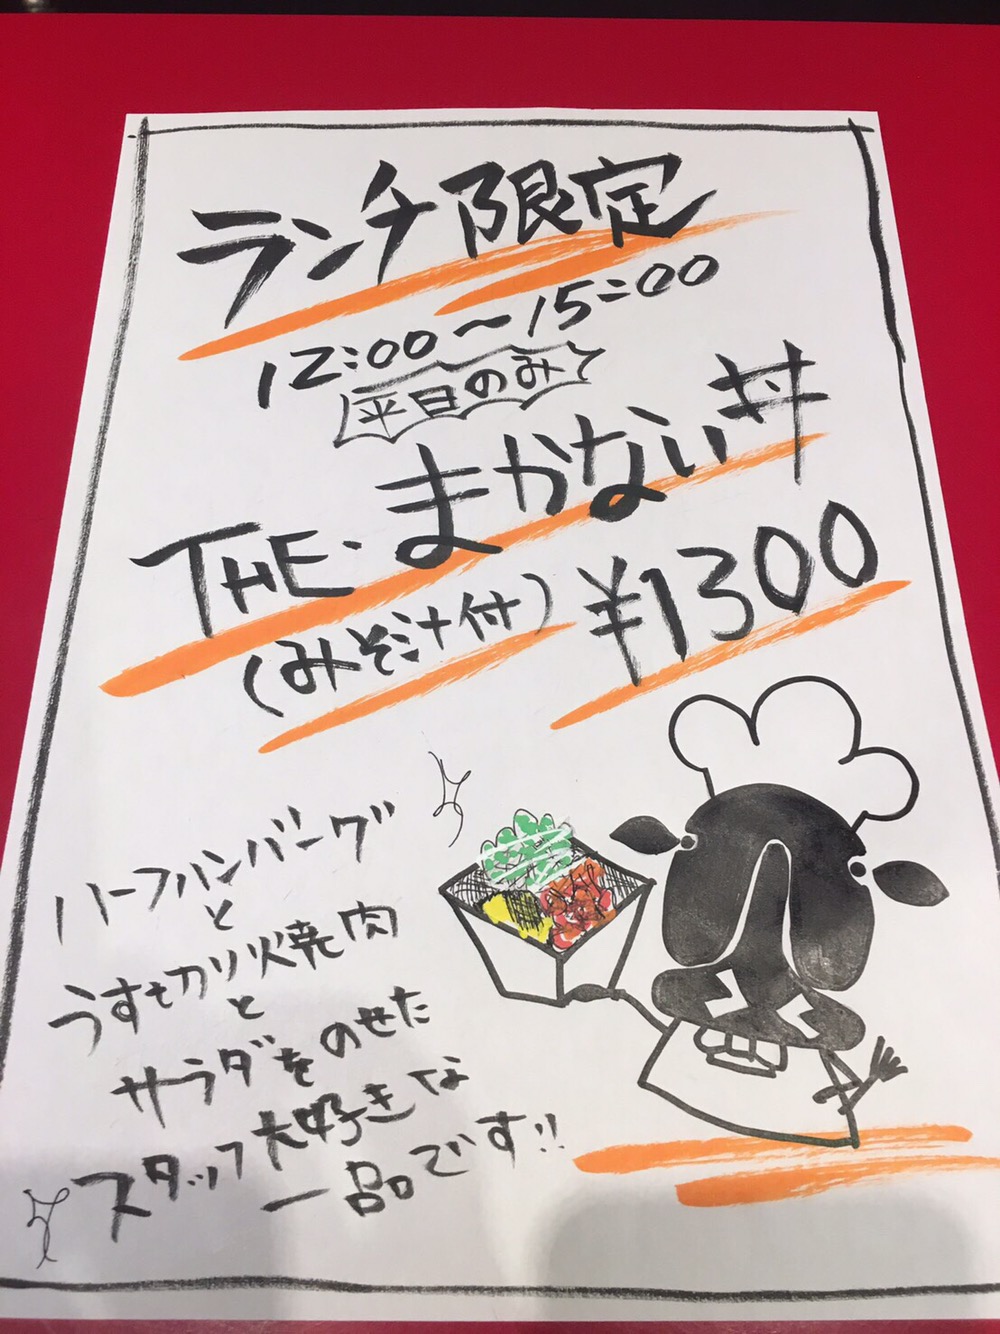 ランチ限定
12:00〜15:00
平日のみ
THE・まかない丼
(みそ汁付) ¥1300
ハーフハンバーグ
と
うす切カリソ焼肉
と
サラダをのせた
スタッフ大好きな
一品です!!